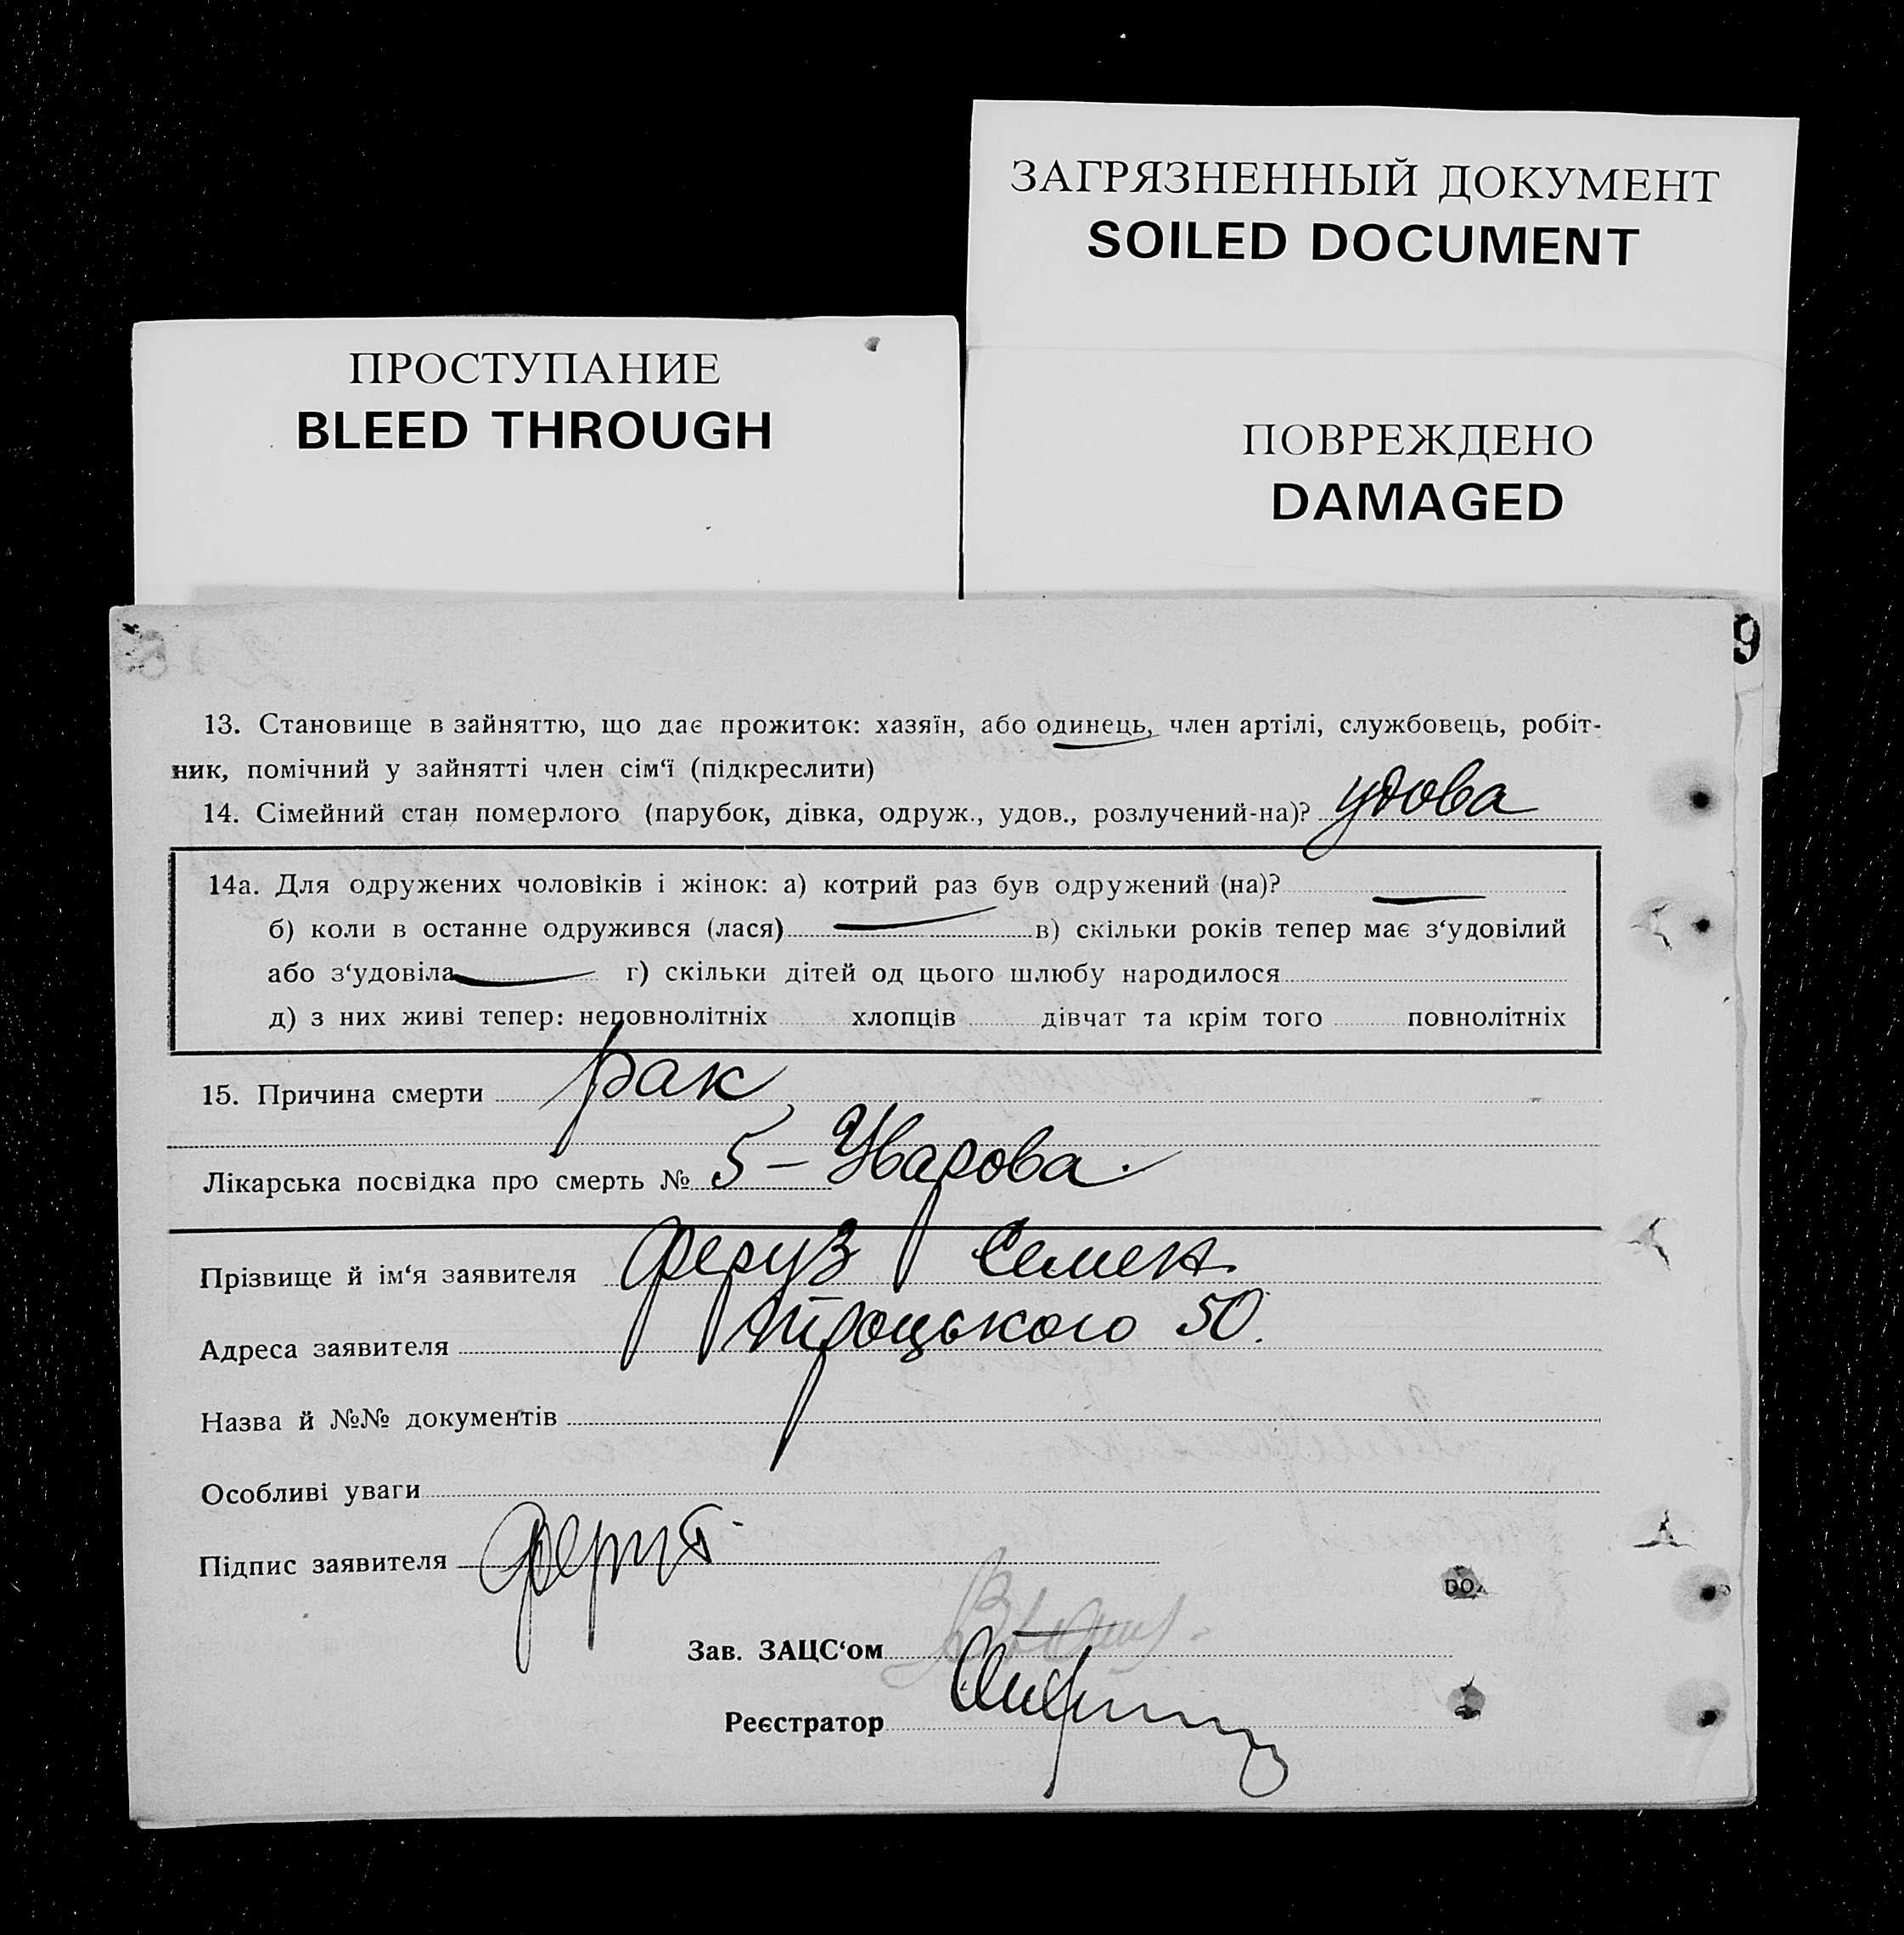 ЗАГРЯЗНЕННЫЙ ДОКУМЕНТ
SOILED DOCUMENT
ПРОСТУПАНИЕ
BLEED THROUGH
ПОВРЕЖДЕНО
DAMAGED
9
13. Становище в зайняттю, що дає прожиток: хазяїн, або одинець, член артілі, службовець, робіт-
ник, помічний у зайнятті член сім‘ї (підкреслити)
14. Сімейний стан померлого (парубок, дівка, одруж., удов., розлучений-на)? удова
14а. Для одружених чоловіків і жінок: а) котрий раз був одружений (на)? —
б) коли в останне одружився (лася) — в) скільки років тепер має з‘удовілий
або з‘удовіла — г) скільки дітей од цього шлюбу народилося
д) з них живі тепер: неповнолітніх хлопців дівчат та крім того повнолітніх
15. Причина смерти рак
Лікарська посвідка про смерть № 5 – Уварова.
Прізвище й ім‘я заявителя Феруз Семен
Адреса заявителя Троцького 50.
Назва й №№ документів
Особливі уваги
Підпис заявителя
Зав. ЗАЦС‘ом
Реєстратор